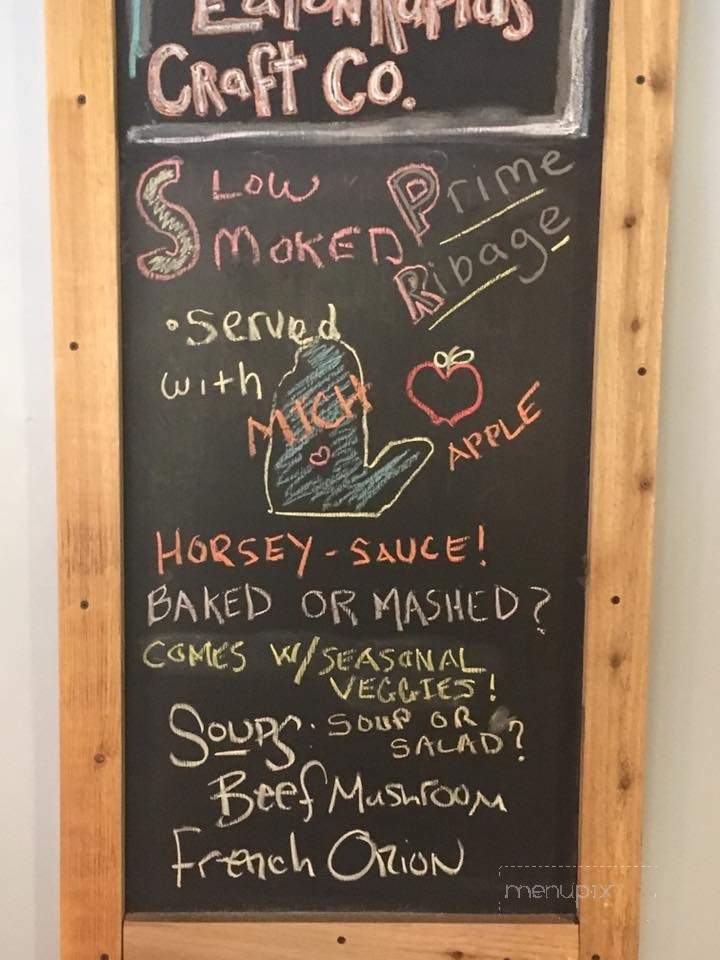 Eaton Rapids
Craft Co.
Slow Prime
Smoked Ribage
• Served
with MICH APPLE
HORSEY-SAUCE!
BAKED OR MASHED?
COMES W/SEASONAL
VEGGIES!
Soups. SOUP OR
SALAD?
Beef Mushroom
French Onion
menupix